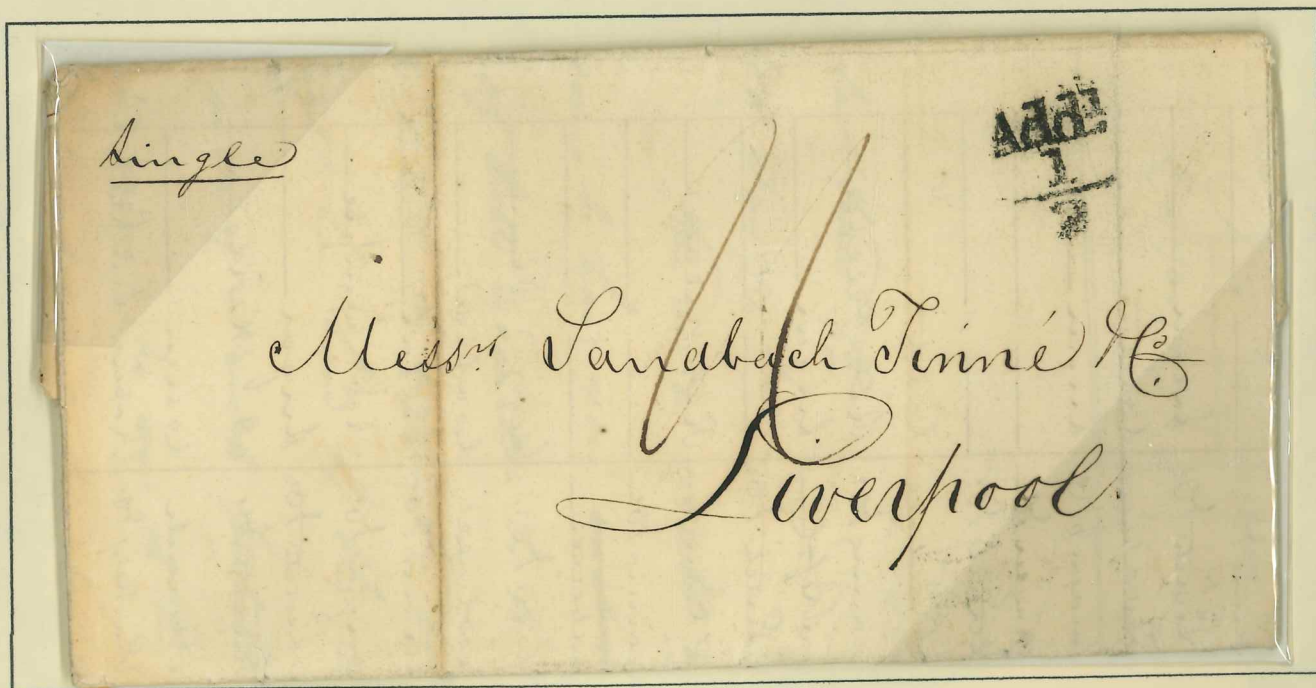 Single
Addl
1
2
11
Messrs Sandbach Tinné & Co.
Liverpool